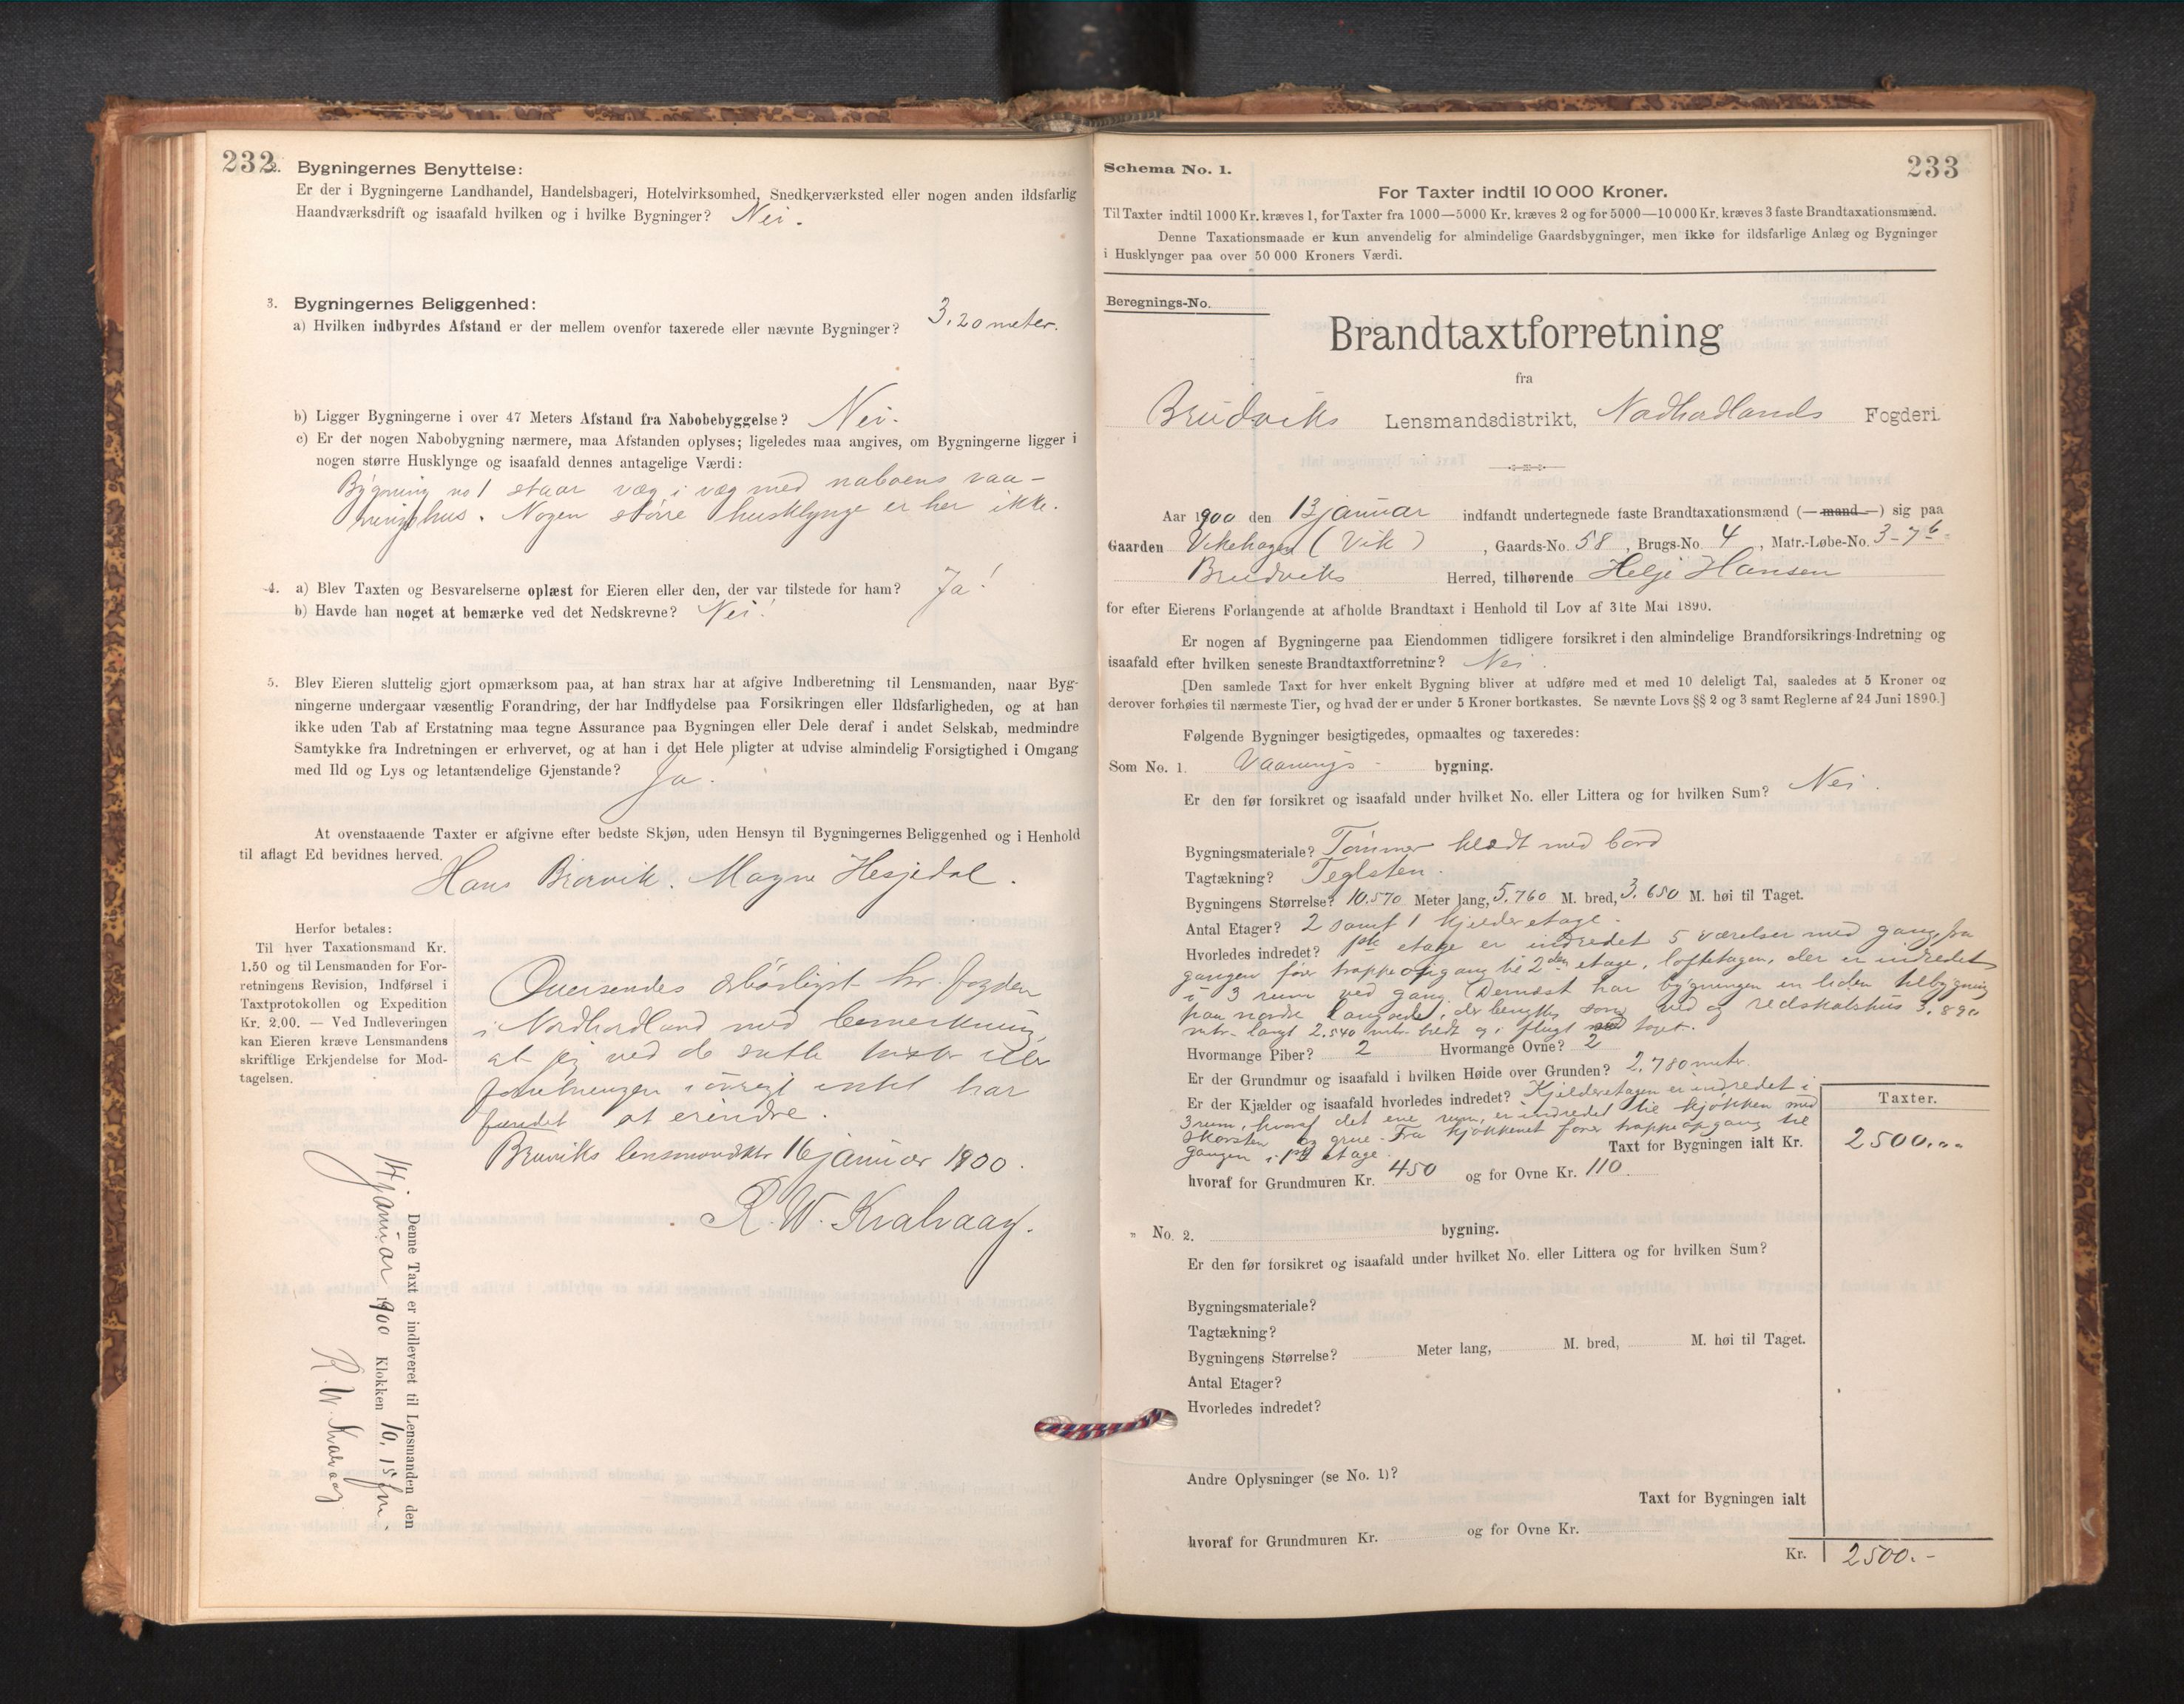 232
2. Bygningernes Benyttelse:
Er der i Bygningerne Landhandel, Handelsbageri, Hotelvirksomhed, Snedkerværksted eller nogen anden ildsfarlig
Haandværksdrift og isaafald hvilken og i hvilke Bygninger? Nei.
3. Bygningernes Beliggenhed:
a) Hvilken indbyrdes Afstand er der mellem ovenfor taxerede eller nævnte Bygninger? 3.20 meter.
b) Ligger Bygningerne i over 47 Meters Afstand fra Nabobebyggelse? Nei.
c) Er der nogen Nabobygning nærmere, maa Afstanden oplyses; ligeledes maa angives, om Bygningerne ligger i
nogen større Husklynge og isaafald dennes antagelige Værdi:
Bygning no 1 staar væg i væg med naboens vaa-
ningshus. Nogen større husklynge er her ikke.
4. a) Blev Taxten og Besvarelserne oplæst for Eieren eller den, der var tilstede for ham? Ja!
b) Havde han noget at bemærke ved det Nedskrevne? Nei!
5. Blev Eieren sluttelig gjort opmærksom paa, at han strax har at afgive Indberetning til Lensmanden, naar Byg-
ningerne undergaar væsentlig Forandring, der har Indflydelse paa Forsikringen eller Ildsfarligheden, og at han
ikke uden Tab af Erstatning maa tegne Assurance paa Bygningen eller Dele deraf i andet Selskab, medmindre
Samtykke fra Indretningen er erhvervet, og at han i det Hele pligter at udvise almindelig Forsigtighed i Omgang
med Ild og Lys og letantændelige Gjenstande? Ja.
At ovenstaaende Taxter er afgivne efter bedste Skjøn, uden Hensyn til Bygningernes Beliggenhed og i Henhold
til aflagt Ed bevidnes herved.
Hans Biørvik. Magne Hesjedal.
Herfor betales:
Til hver Taxationsmand Kr.
1.50 og til Lensmanden for For-
retningens Revision, Indførsel i
Taxtprotokollen og Expedition
Kr. 2.00. — Ved Indleveringen
kan Eieren kræve Lensmandens
skriftlige Erkjendelse for Mod-
tagelsen.
Oversendes ærbødigst hr. fogden
i Nordhordland med bemerkning
at jeg ved de satte takster eller
forretningen i øvrigt intet har
fundet at erindre.
Bruviks lensmandsktr 16 januar 1900.
R. W. Kvalvaag.
Denne Taxt er indleveret til Lensmanden den
14 januar 1900 Klokken 10.15 fm.
R. W. Kvalvaag
233
Schema No. 1.
For Taxter indtil 10 000 Kroner.
Til Taxter indtil 1000 Kr. kræves 1, for Taxter fra 1000—5000 Kr. kræves 2 og for 5000—10 000 Kr. kræves 3 faste Brandtaxationsmænd.
Denne Taxationsmaade er kun anvendelig for almindelige Gaardsbygninger, men ikke for ildsfarlige Anlæg og Bygninger
i Husklynger paa over 50 000 Kroners Værdi.
Beregnings-No.
Brandtaxtforretning
fra
Brudviks Lensmandsdistrikt, Nordhordlands Fogderi
Aar 1900 den 13 januar indfandt undertegnede faste Brandtaxationsmænd (— mand —) sig paa
Gaarden Vikehagen (Vik), Gaards-No. 58, Brugs-No. 4, Matr.-Løbe-No. 3-7b
Brudviks Herred, tilhørende Helje Hansen
for efter Eierens Forlangende at afholde Brandtaxt i Henhold til Lov af 31te Mai 1890.
Er nogen af Bygningerne paa Eiendommen tidligere forsikret i den almindelige Brandforsikrings-Indretning og
isaafald efter hvilken seneste Brandtaxtforretning? Nei.
[Den samlede Taxt for hver enkelt Bygning bliver at udføre med et med 10 deleligt Tal, saaledes at 5 Kroner og
derover forhøies til nærmeste Tier, og hvad der er under 5 Kroner bortkastes. Se nævnte Lovs §§ 2 og 3 samt Reglerne af 24 Juni 1890.]
Følgende Bygninger besigtigedes, opmaaltes og taxeredes:
Som No. 1. Vaanings- bygning.
Er den før forsikret og isaafald under hvilket No. eller Littera og for hvilken Sum? Nei.
Bygningsmateriale? Tømmer klædt med bord
Tagtækning? Teglsten.
Bygningens Størrelse? 10.570 Meter lang, 5.760 M. bred, 3.650 M. høi til Taget.
Antal Etager? 2 samt 1 kjelderetage.
Hvorledes indredet? 1ste etage er indredet 5 værelser med gang, fra
gangen fører trappeopgang til 2den etage, loftetagen, der er indredet
i 3 rum ved gang. Dernæst har bygningen en liden tilbygning
paa nordre langside, der benyttes som ved og redskabshus 3.890
mtr. langt 2.540 mtr. bredt og i flugt med taget.
Hvormange Piber? 2 Hvormange Ovne? 2
Er der Grundmur og isaafald i hvilken Høide over Grunden? 2.780 meter.
Er der Kjælder og isaafald hvorledes indredet? Kjelderetagen er indredet i
3 rum, hvoraf det ene rum, er indredet til kjøkken med
skorsten og grue. Fra kjøkkenet fører trappeopgang til
gangen i 1ste etage.
Taxter.
Taxt for Bygningen ialt Kr. 2500.„„
hvoraf for Grundmuren Kr. 450 og for Ovne Kr. 110.
„ No. 2. bygning.
Er den før forsikret og isaafald under hvilket No. eller Littera og for hvilken Sum?
Bygningsmateriale?
Tagtækning?
Bygningens Størrelse? Meter lang, M. bred, M. høi til Taget.
Antal Etager?
Hvorledes indredet?
Andre Oplysninger (se No. 1)?
Taxt for Bygningen ialt
hvoraf for Grundmuren Kr. og for Ovne Kr.
Kr. 2500.-